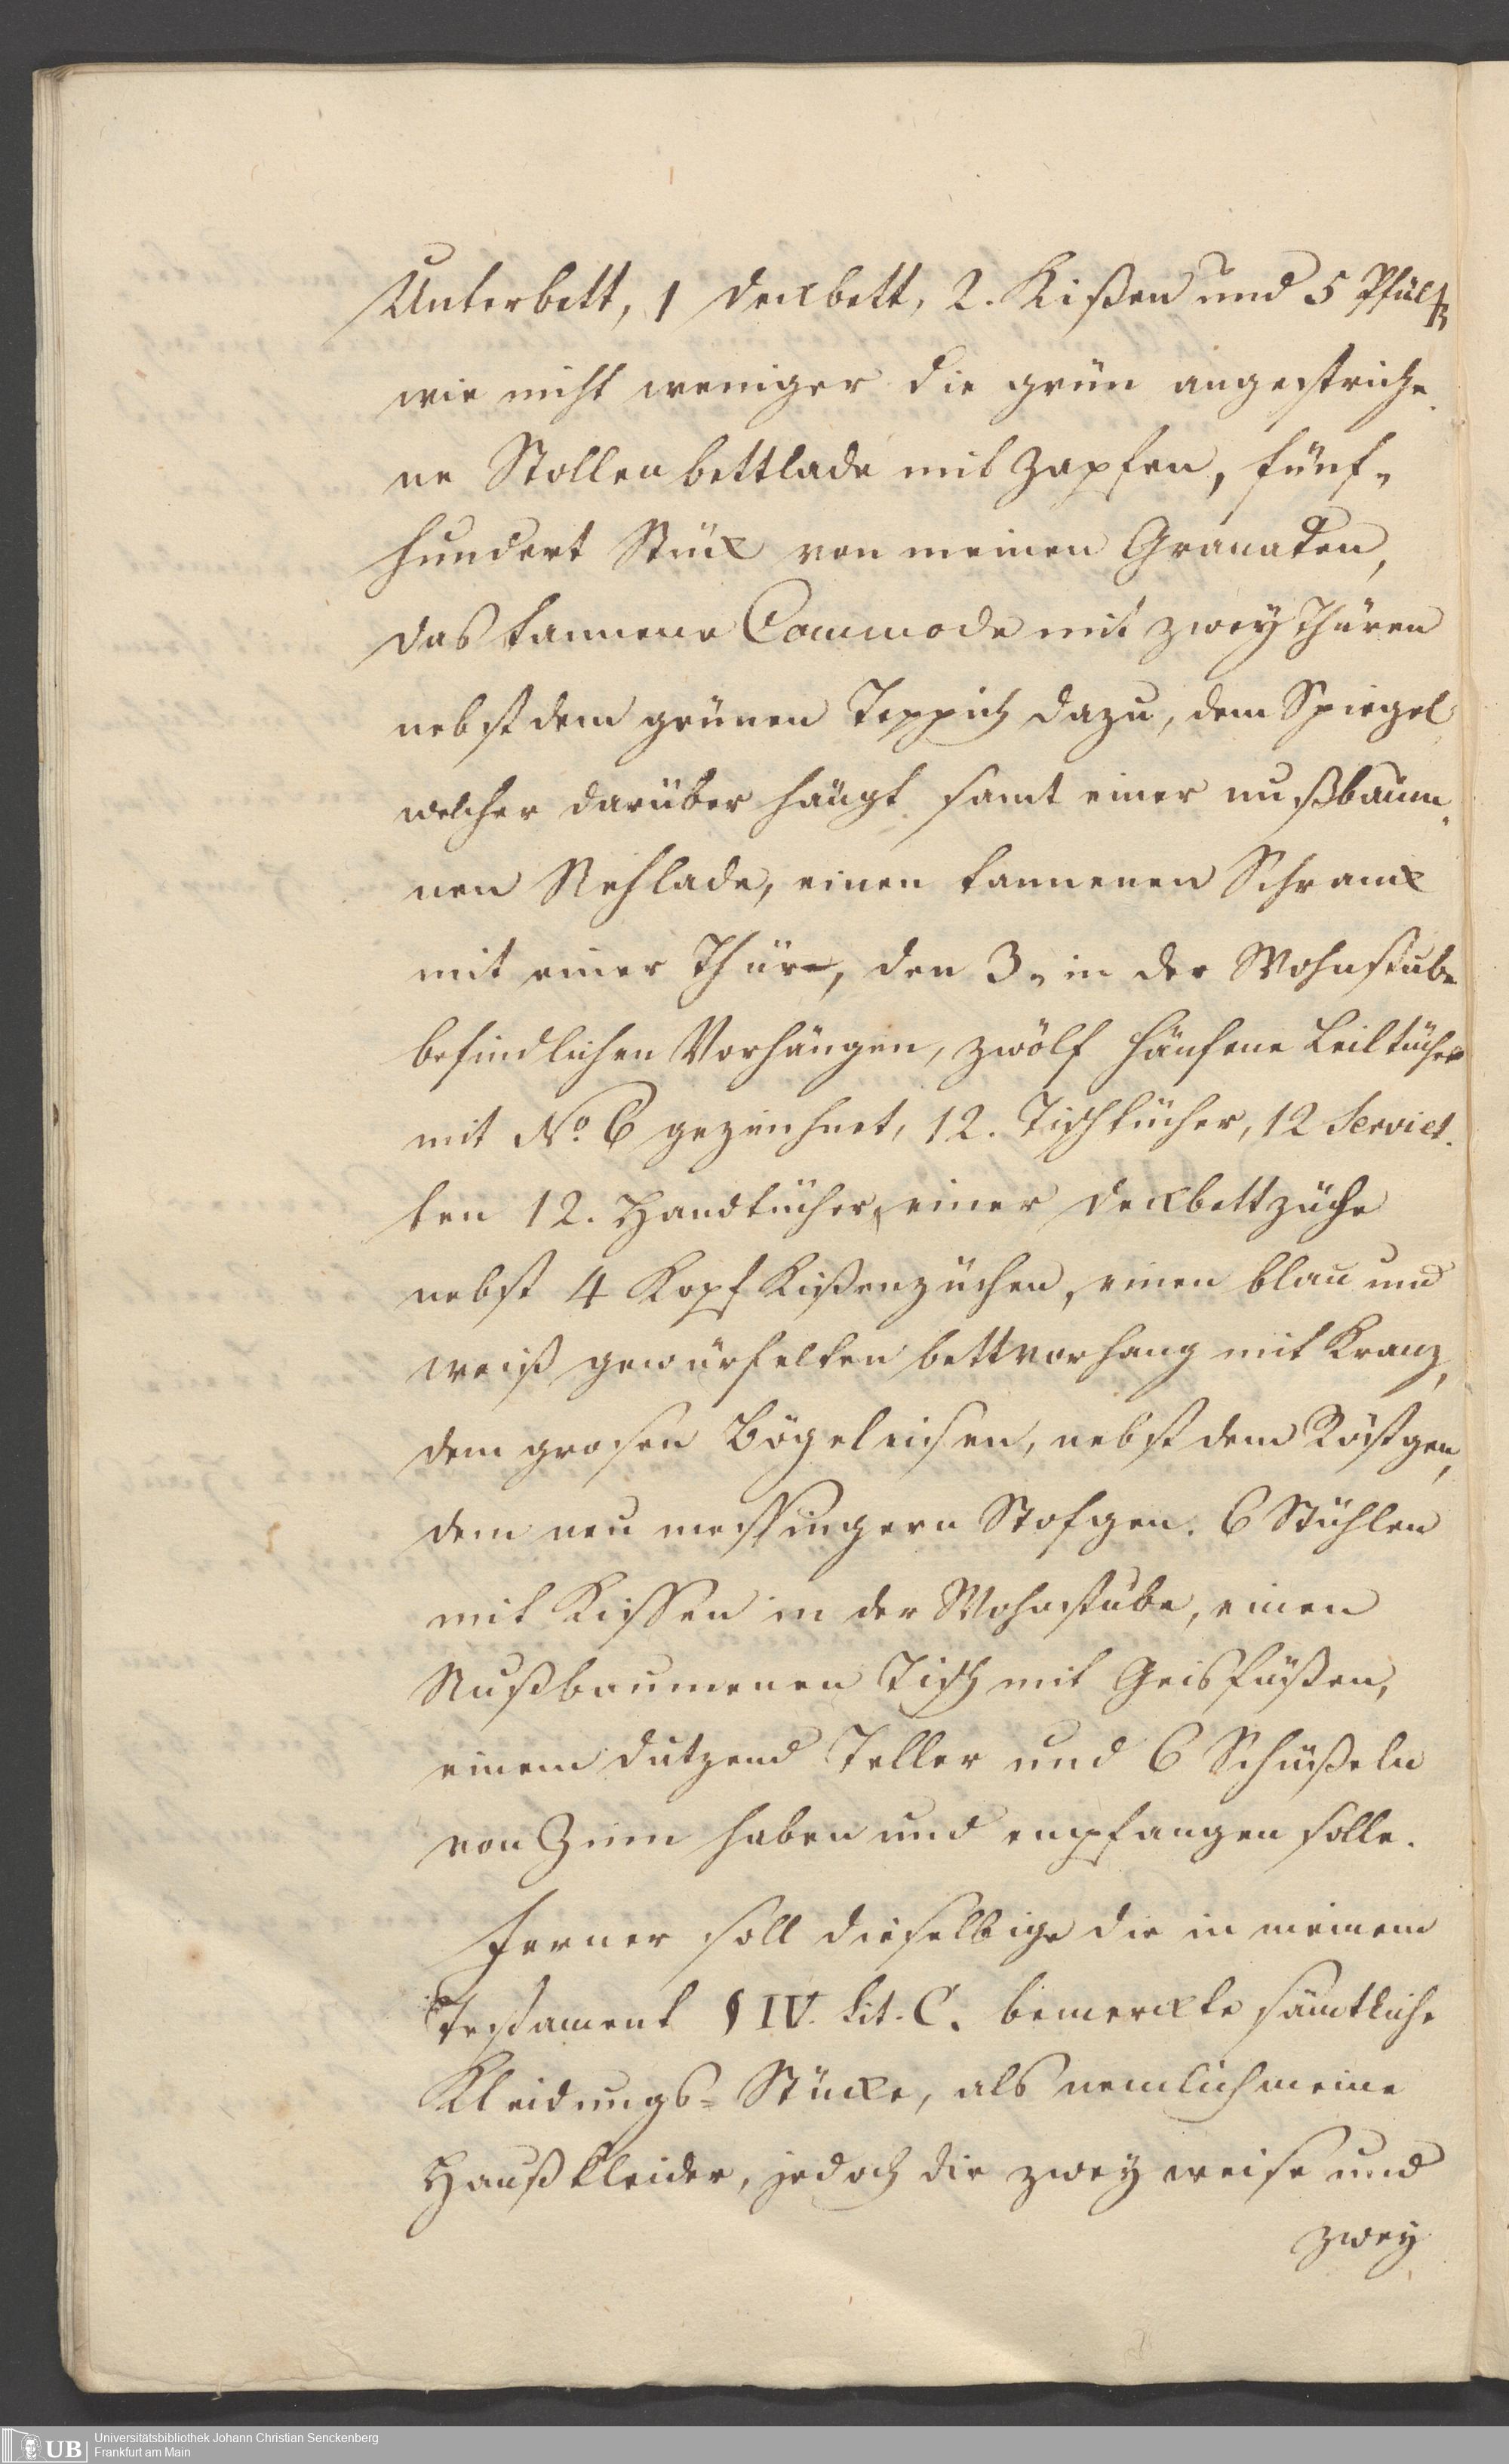 Unterbett, 1 deckbett, 2. Kißen und 5 Pfülf
wie nicht weniger die grün angestriche
ne Stollenbettlade mit Zapfen, fünf„
hundert Stück von meinen Granaten,
das tannene Commode mit zwey Thüren
nebst dem grünen Teppich dazu, dem Spiegel
welcher darüber hängt samt einer nußbaum„
nen Nehlade, einen tannenen Schranck
mit einer Thüre, den 3„ in der Wohnstube
befindlichen Vorhängen, zwölf hänfene Leiltücher
mit No. 6 gezeichnet, 12. Tischtücher, 12 Serviet.
ten 12. Handtücher, einer deckbettzüche
nebst 4 Kopf Kißenzüchen, einen blau und
weiß gewürfelten bettvorhang mit Kranz,
dem grosen Bögeleisen, nebst dem Röstgen,
dem neu messingern Stofgen. 6 Stühlen
mit Kissen in der Wohnstube, einen
Nußbaumenen Tisch mit Geisfüßen,
einem dutzend Teller und 6 Schüßeln
von Zinn haben und empfangen solle.
Ferner soll dieselbige die in meinem
Testament § IV. Lit. C. bemerckte sämtliche
Kleidungs= Stücke, als nemlich meine
Haußkleider, jedoch die zwey weise und
zwey
UB
Universitätsbibliothek Johann Christian Senckenberg
Frankfurt am Main